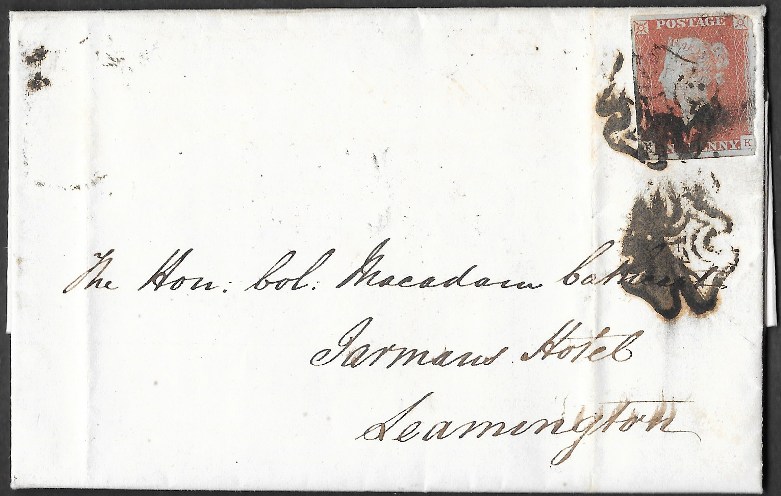 POSTAGE
K
The Hon: Col: Macadam Cathcart
Jarmans Hotel
Leamington